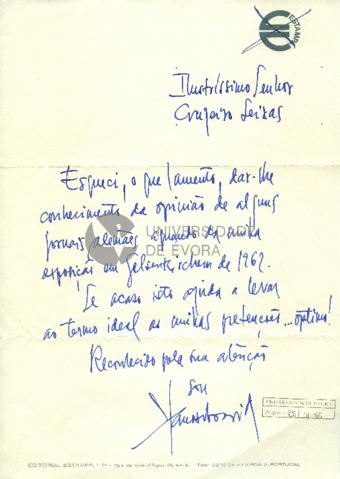 ESTAMPA
Ilustríssimo Senhor
Cruzeiro Seixas
Esqueci, o que lamento, dar-lhe
conhecimento da opinião de alguns
jornais alemães aquando da minha
exposição em Gelsenkirchen de 1962.
Se acaso isto ajuda a levar
ao termo ideal as minhas pretenções... óptimo!
Reconhecido pela sua atenção
sou
UNIVERSIDADE
DE ÉVORA
EDITORIAL ESTAMPA, LDA
LISBOA-2-PORTUGAL